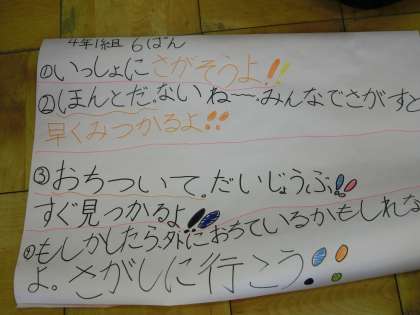 4年1組 6ぱん
①いっしょに さがそうよ!!
②ほんとだ。ない ね〜。みんなでさがすと
早くみつかるよ!!
③おちついて。だいじょうぶ!!
すぐ見つかるよ!!
④もしかしたら、外におちているかもしれな
よ。さがしに行こう!!